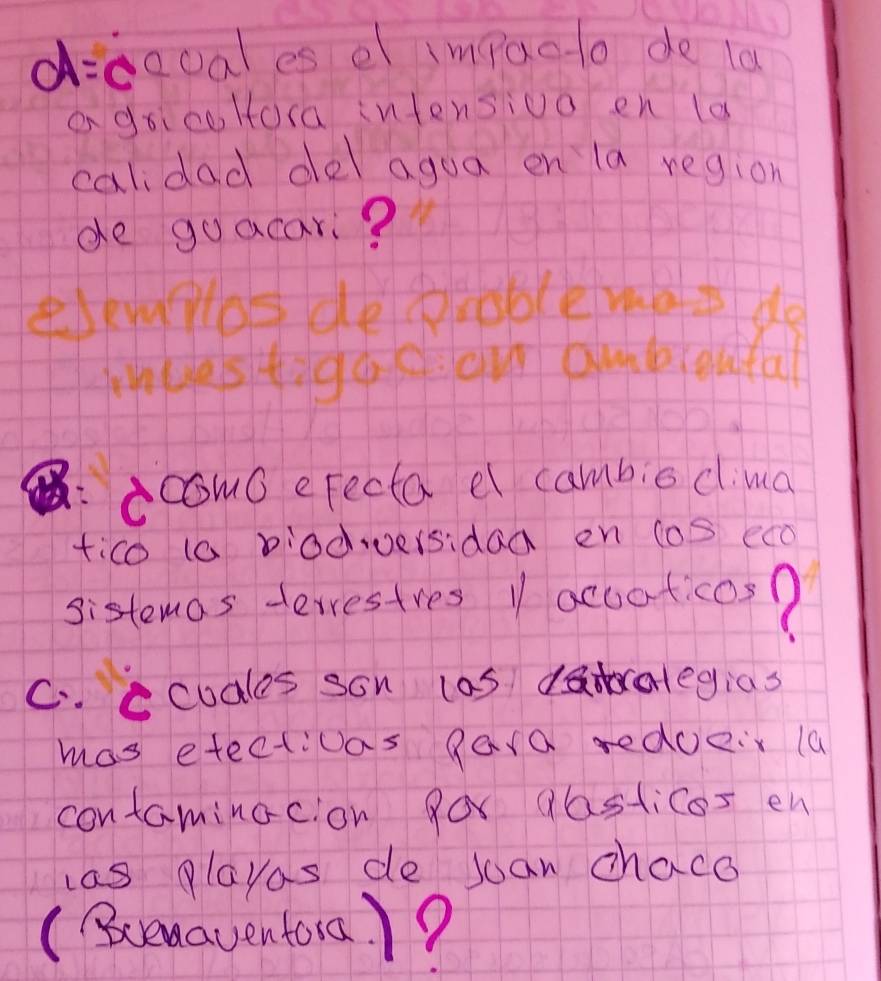 d=¿cual es el impacto de la
agricultura intensiva en la
calidad del agua en la region
de guacari?"
eJemplos de problemas de
investigacion ambiental
: "¿como efecta el cambio clima
tico la biodiversidad en los eco
sistemas terrestres y acuaticos?"
C:. "¿cuales son las
mas efectivas para reducir la
contaminacion por plasticos en
las playas de Juan chaco
(Buenaventura.)?